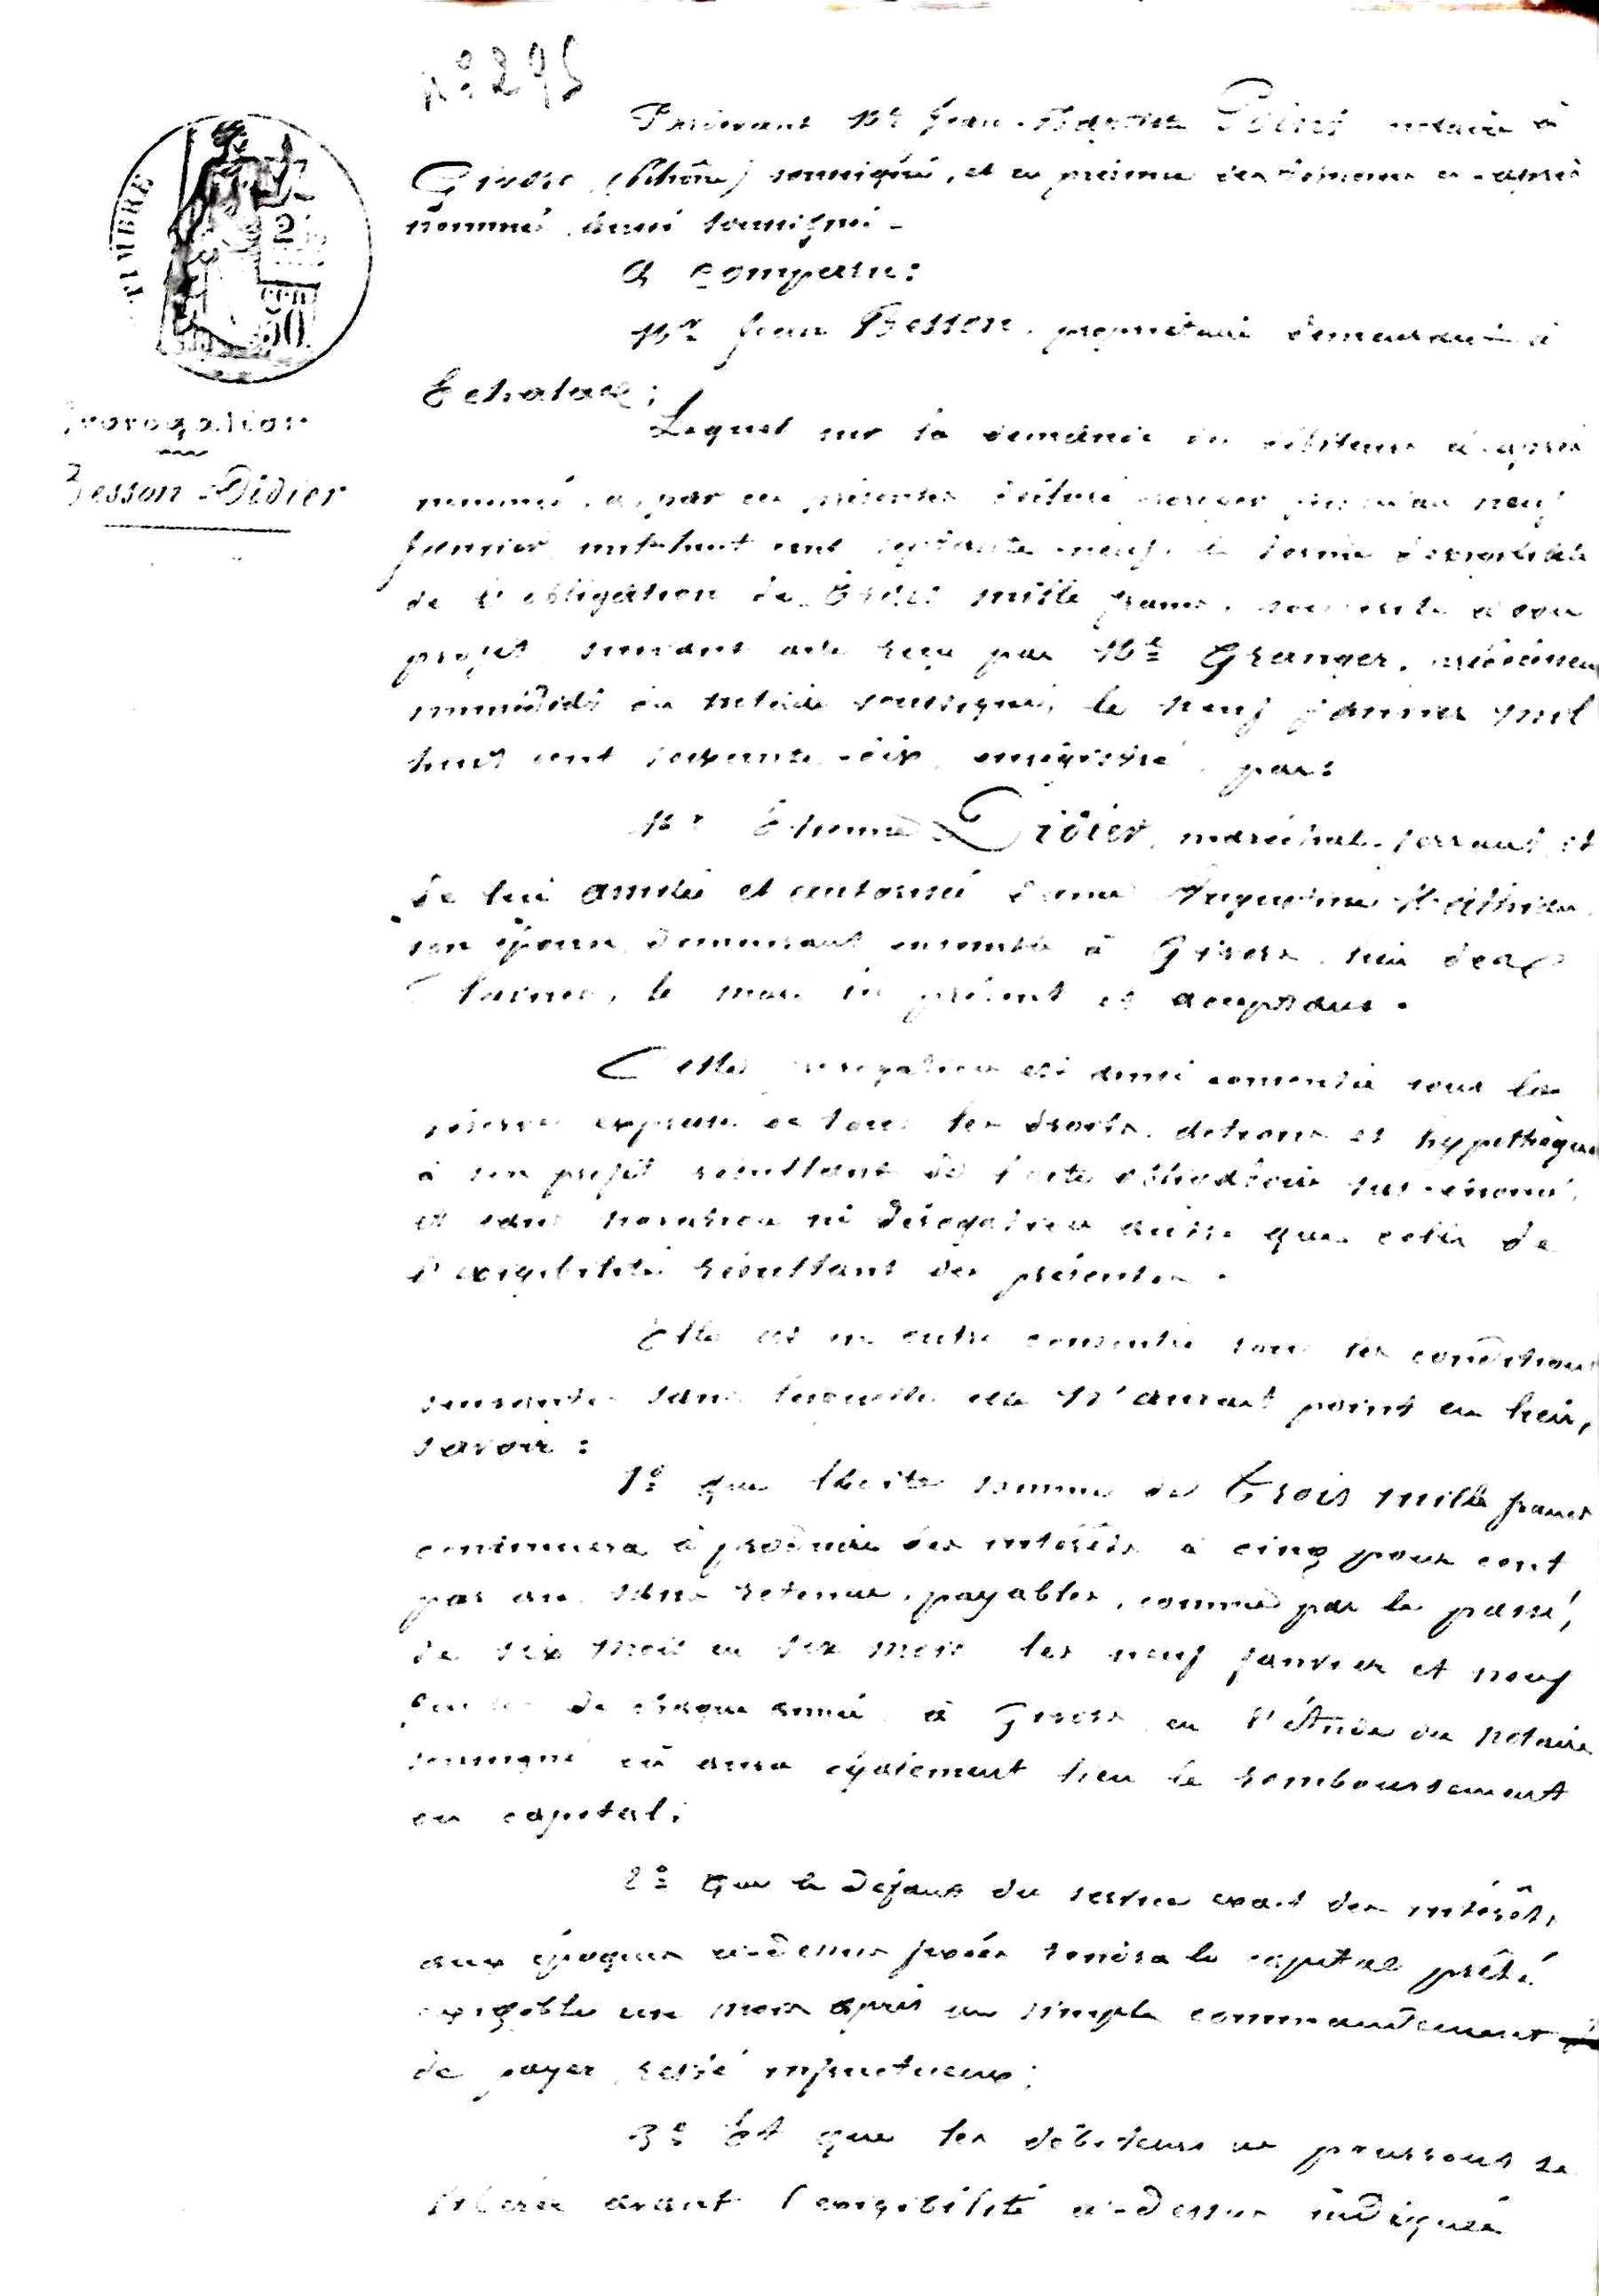 N° 295
TIMBRE
2
50
Prorogation
Besson - Didier
Pardevant Me Jean notaire à
Givors (Rhône) soussigné, et en présence des témoins ci-après
nommés, aussi soussignés -
a comparu:
Mr Jean Besson, propriétaire demeurant à
Echalas;
Lequel sur la demande des débiteurs ci-après
nommés, a, par ces présentes déclaré proroger jusqu'au neuf
janvier mil huit cent septante neuf, le terme d'exigibilité
de l'obligation de trois mille francs, souscrite à son
profit suivant acte reçu par Me Granger, prédécesseur
immédiat du notaire soussigné, le neuf janvier mil
huit cent soixante-dix, enregistré, par:
Mr Etienne Didier, maréchal-ferrant, et
de lui assistée et autorisée dame Augustine
son épouse, demeurant ensemble à Givors, rue des
le mari ici présent et acceptant.
Cette prorogation est ainsi consentie sous la
réserve expresse de tous les droits, actions et hypothèques
à son profit résultant de l'acte obligatoire sus-énoncé,
et sans novation ni dérogation autre que celle de
l'exigibilité résultant des présentes.
Elle est en outre consentie sous les conditions
suivantes sans lesquelles elle n'aurait point eu lieu,
savoir:
1° que ladite somme de trois mille francs
continuera à produire des intérêts à cinq pour cent
par an sans retenue, payables, comme par le passé,
de six mois en six mois les neuf janvier et neuf
juillet de chaque année à Givors en l'étude du notaire
soussigné où aura également lieu le remboursement
du capital;
2° que le défaut du service exact des intérêts
aux époques ci-dessus fixées rendra le capital prêté
exigible un mois après un simple commandement
de payer resté infructueux;
3° Et que les débiteurs ne pourront se
libérer avant l'exigibilité ci-dessus indiquée